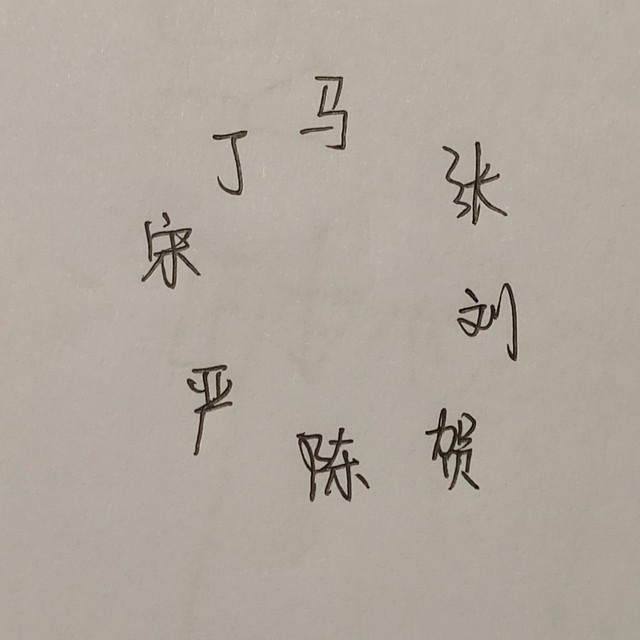 马
丁
张
宋
刘
严
贺
陈